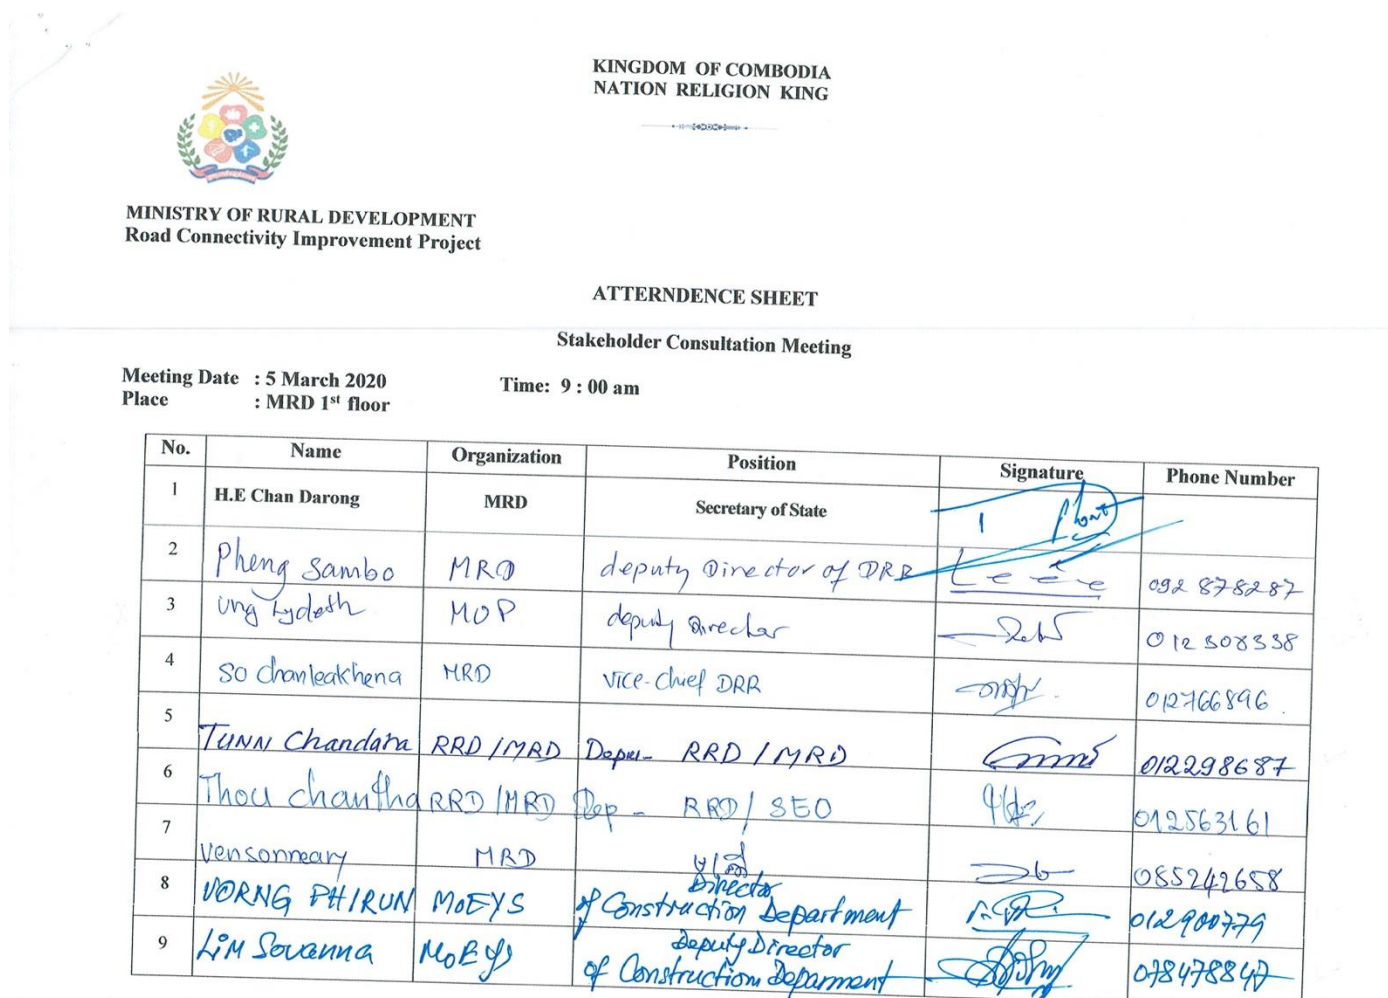 KINGDOM OF COMBODIA
NATION RELIGION KING
MINISTRY OF RURAL DEVELOPMENT
Road Connectivity Improvement Project
ATTERNDENCE SHEET
Stakeholder Consultation Meeting
Meeting Date : 5 March 2020 Time: 9 : 00 am
Place : MRD 1st floor
No. Name Organization Position Signature Phone Number
1 H.E Chan Darong MRD Secretary of State
2 Pheng Sambo MRD deputy Director of DRR 092 878287
3 ung Lydeth MOP deputy Director 012 308338
4 So Chanleakhena MRD vice-chief DRR 012766896
5 TUNN Chandara RRD/MRD RRD / MRD 012298687
6 Thou chantha RRD/MRD Dep - RRD/ SEO 012563161
7 Vensonneary MRD 085242658
8 VORNG PHIRUN MoEYS Director
of Construction Department 012900779
9 LiM Sovanna MoEYS Deputy Director
of Construction Deparment 078478847